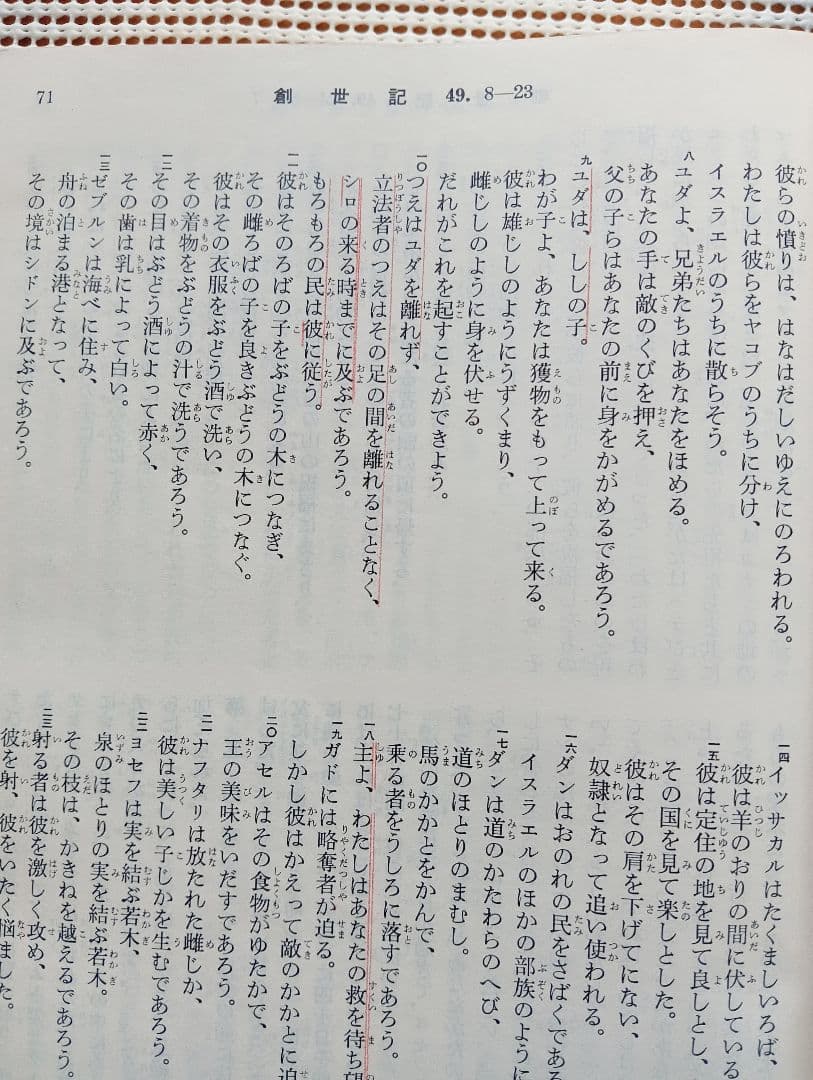 71
創世記 49. 8―23
彼らの憤りは、はなはだしいゆえにのろわれる。
わたしは彼らをヤコブのうちに分け、
イスラエルのうちに散らそう。
八ユダよ、兄弟たちはあなたをほめる。
あなたの手は敵のくびを押え、
父の子らはあなたの前に身をかがめるであろう。
九ユダは、ししの子。
わが子よ、あなたは獲物をもって上って来る。
彼は雄じしのようにうずくまり、
雌じしのように身を伏せる。
だれがこれを起すことができよう。
一〇つえはユダを離れず、
立法者のつえはその足の間を離れることなく、
シロの来る時までに及ぶであろう。
もろもろの民は彼に従う。
一一彼はそのろばの子をぶどうの木につなぎ、
その雌ろばの子を良きぶどうの木につなぐ。
彼はその衣服をぶどう酒で洗い、
その着物をぶどうの汁で洗うであろう。
一二その目はぶどう酒によって赤く、
その歯は乳によって白い。
一三ゼブルンは海べに住み、
舟の泊まる港となって、
その境はシドンに及ぶであろう。
一四イッサカルはたくましいろば、
彼は羊のおりの間に伏している
一五彼は定住の地を見て良しとし、
その国を見て楽しとした。
彼はその肩を下げてにない、
奴隷となって追い使われる。
一六ダンはおのれの民をさばくであろ
イスラエルのほかの部族のように
一七ダンは道のかたわらのへび、
道のほとりのまむし。
馬のかかとをかんで、
乗る者をうしろに落すであろう。
一八主よ、わたしはあなたの救を待ち望
一九ガドには略奪者が迫る。
しかし彼はかえって敵のかかとに迫
二〇アセルはその食物がゆたかで、
王の美味をいだすであろう。
二一ナフタリは放たれた雌じか、
彼は美しい子じかを生むであろう。
二二ヨセフは実を結ぶ若木、
泉のほとりの実を結ぶ若木。
その枝は、かきねを越えるであろう。
二三射る者は彼を激しく攻め、
彼を射、彼をいたく悩ました。